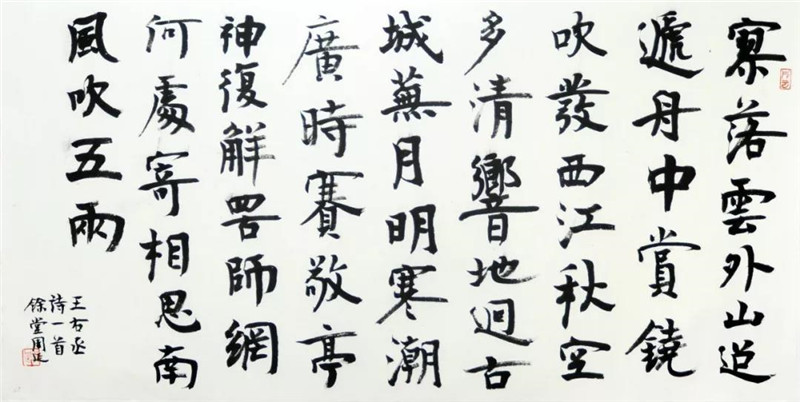 寥落雲外山迢
遞舟中賞鐃
吹發西江秋空
多清響地迥古
城蕪月明寒潮
廣時賽敬亭
神復解罟師網
何處寄相思南
風吹五兩
王右丞
诗一首
餘堂周